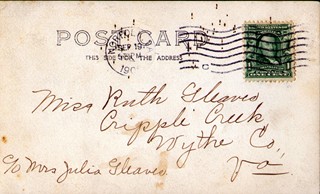 POST CARD
THIS SIDE FOR THE ADDRESS
SEP 19
190
C
Miss Ruth Gleaves
Cripple Creek
Wythe Co.
Va
c/o Mrs Julia Gleaves